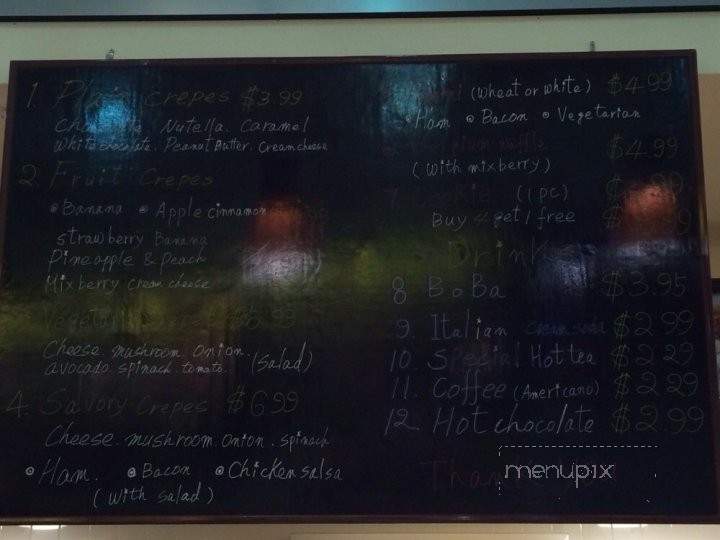 1 Plain crepes $3.99
Chocolate Nutella. Caramel
White chocolate. Peanut Butter. Cream cheese
2. Fruit Crepes
Banana Apple cinnamon
strawberry Banana
Pineapple & Peach
Mixberry cream cheese
Cheese. mushroom. onion.
avocado. spinach. tomato. (Salad)
4. Savory Crepes $6.99
Cheese. mushroom. onion. spinach
Ham. Bacon Chicken salsa
(with salad)
(wheat or white) $4.99
Ham Bacon Vegetarian
$4.99
(with mixberry)
(1 pc)
Buy 4 get 1 free
Drinks
8 BoBa $3.95
9. Italian cream soda $2.99
10. Special Hot tea $2.29
11. Coffee (Americano) $2.29
12. Hot chocolate $2.99
menupix